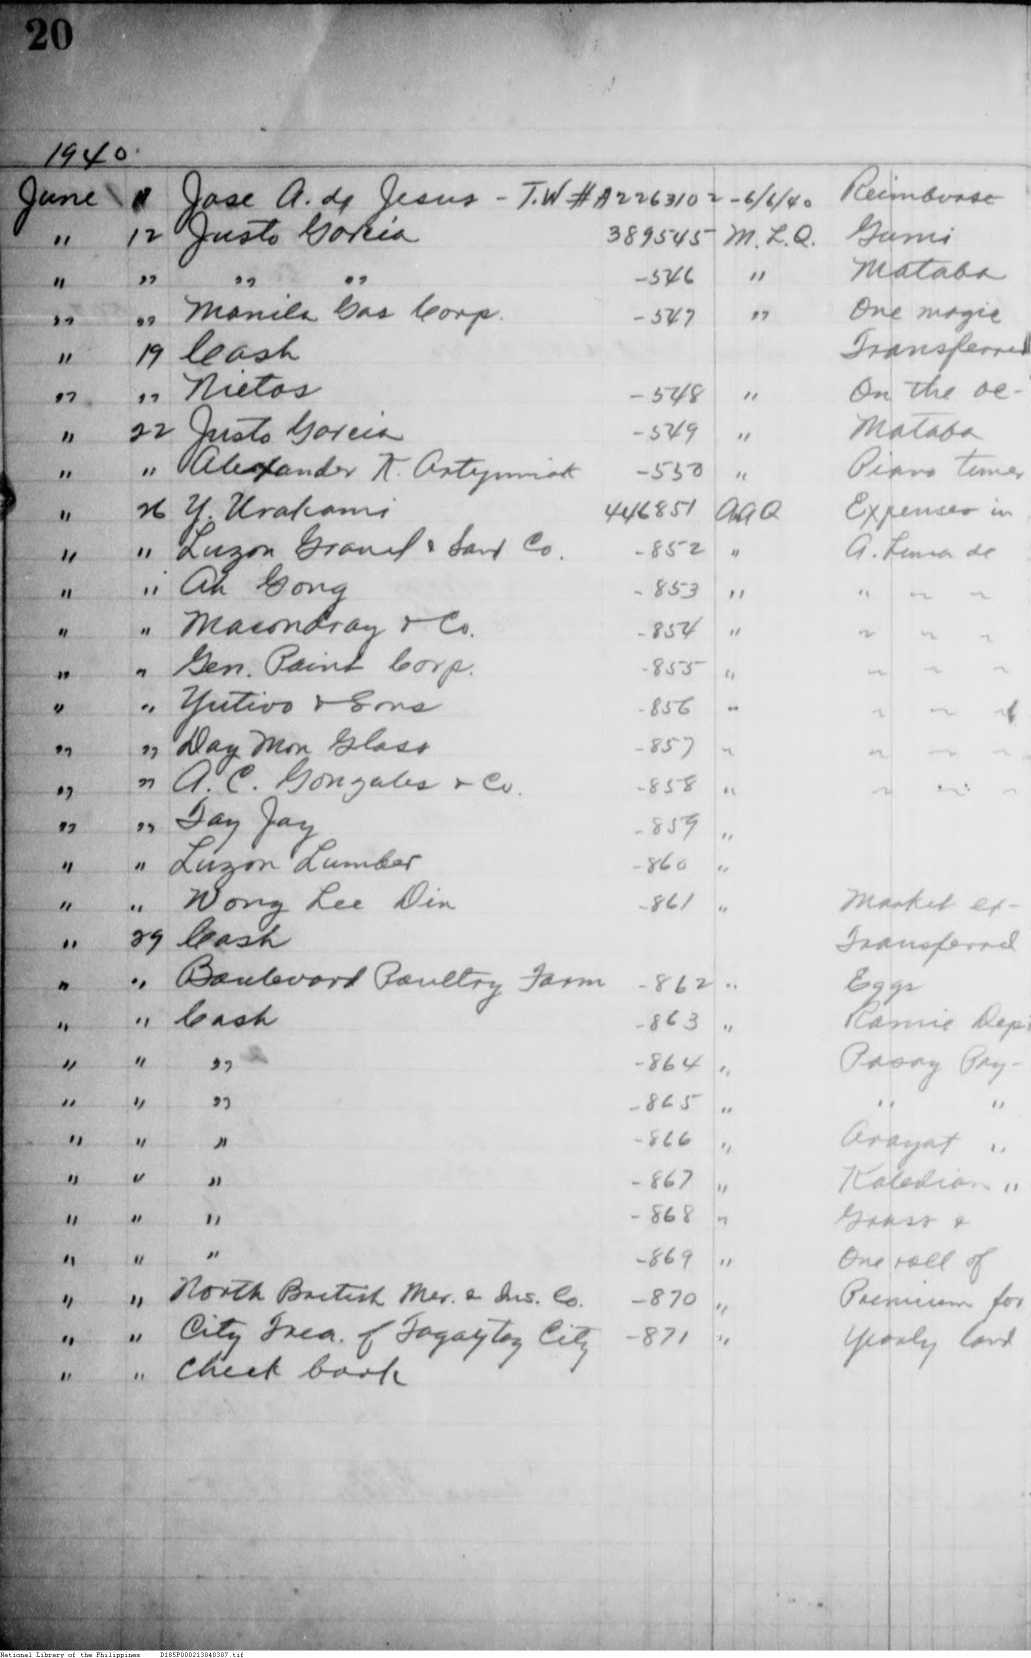 20
1940
June 11 Jose A. de Jesus - T.W # A2263102 - 6/6/40 Reimburse
" 12 Justo Garcia 389545 M.L.Q. Gumi
" " " " -546 " Mataba
" " Manila Gas Corp. -547 " One magic
" 19 Cash Transferred
" " Nietos -548 " On the ac-
" 22 Justo Garcia -549 " Mataba
" " Alexander K. -550 " Piano tuner
" 26 Y. Urakami 446851 AAQ Expenses in
" " Luzon Gravel & Sand Co. -852 " A. Luna de
" " Ah Gong -853 " " " "
" " Macondray & Co. -854 " " " "
" " Gen. Paint Corp. -855 " " " "
" " Yutivo & Sons -856 " " "
" " Day Mon Glass -857 " " " "
" " A. C. Gonzales & Co. -858 " " " "
" " Tay Jay -859 "
" " Luzon Lumber -860 "
" " Wong Lee Din -861 " Market ex-
" 29 Cash Transferred
" " Boulevard Poultry Farm -862 " Eggs
" " Cash -863 " Ramie Dep
" " " -864 " Pasay Pay-
" " " -865 " " "
" " " -866 " Arayat "
" " " -867 " Kaledian "
" " " -868 " Grass &
" " " -869 " One roll of
" " North British Mer. & Ins. Co. -870 " Premium for
" " City Trea. of Tagaytay City -871 " Yearly land
" " Check book
National Library of the Philippines D185P000213040307.tif